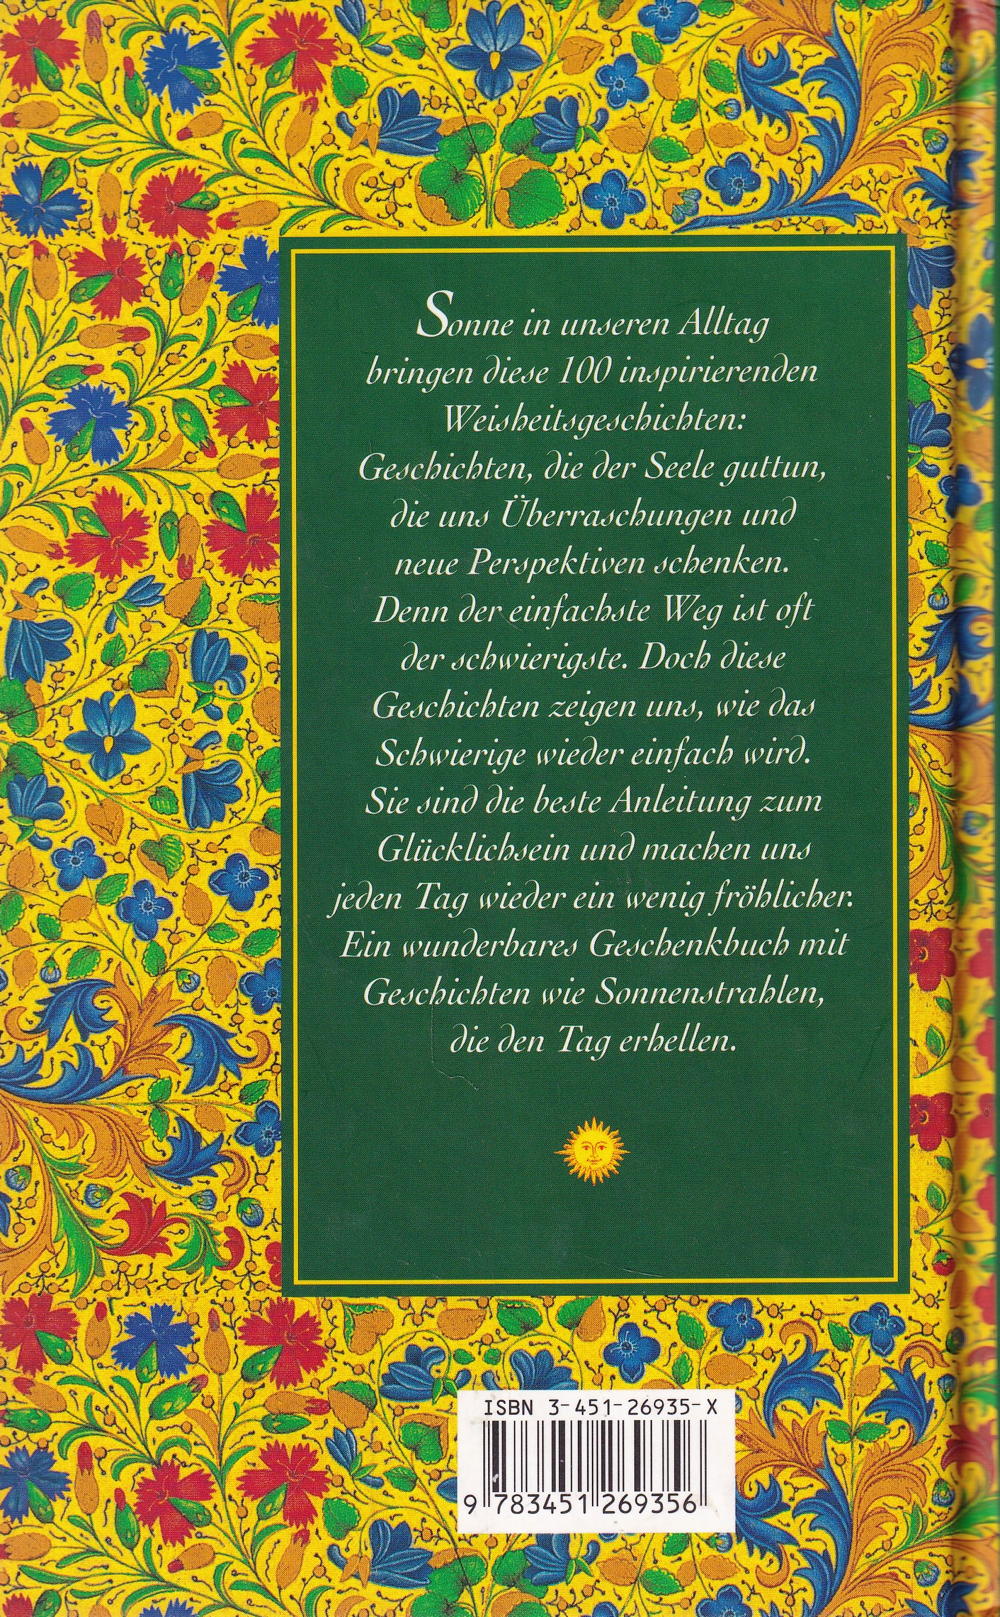 Sonne in unseren Alltag
bringen diese 100 inspirierenden
Weisheitsgeschichten:
Geschichten, die der Seele guttun,
die uns Überraschungen und
neue Perspektiven schenken.
Denn der einfachste Weg ist oft
der schwierigste. Doch diese
Geschichten zeigen uns, wie das
Schwierige wieder einfach wird.
Sie sind die beste Anleitung zum
Glücklichsein und machen uns
jeden Tag wieder ein wenig fröhlicher.
Ein wunderbares Geschenkbuch mit
Geschichten wie Sonnenstrahlen,
die den Tag erhellen.
ISBN 3-451-26935-X
9 783451 269356